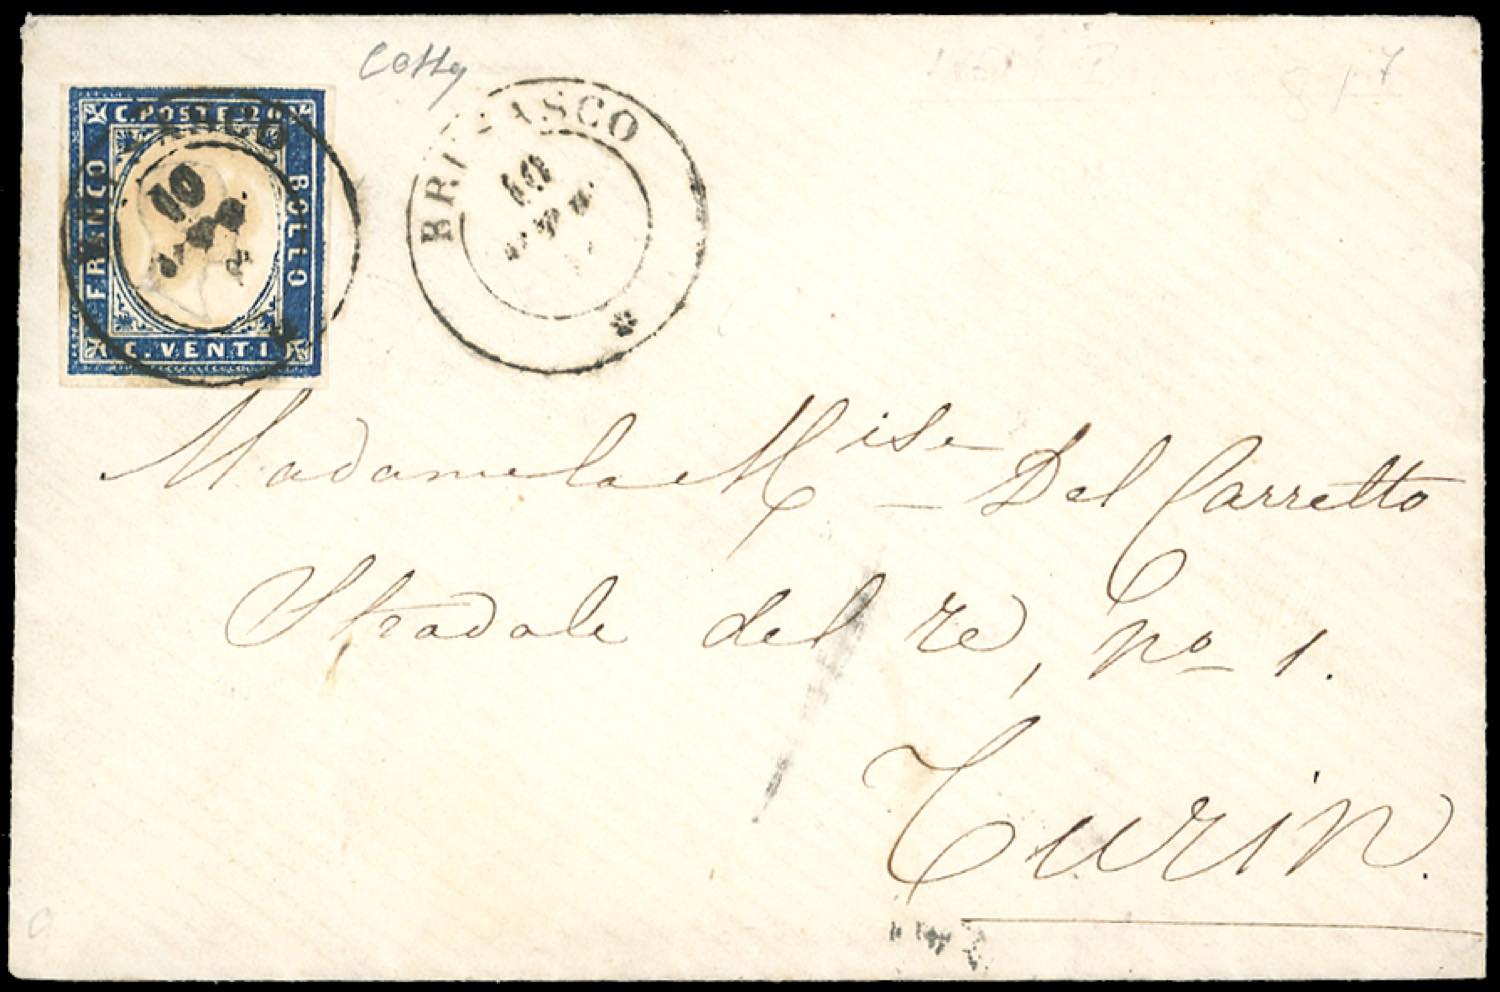 Cotta
C. POSTE 20
FRANCO
BOLLO
C. VENTI
10
BRICHERASCO
10
Madame la Mise Del Carretto
Stradale del re, no 1.
Turin.